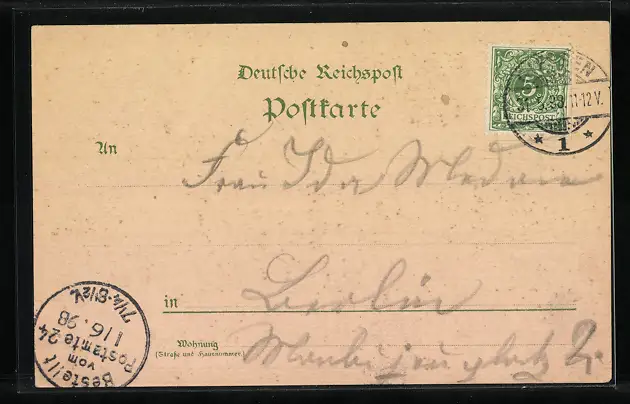 Deutsche Reichspost
Postkarte
5
REICHSPOST
11-12 V.
* 1 *
An
Frau Ida
in Berlin
Wohnung
(Straße und Hausnummer)
Monbijouplatz 2.
Bestellt
vom
Postamte 24
1/6. 98
7¼-8½V.